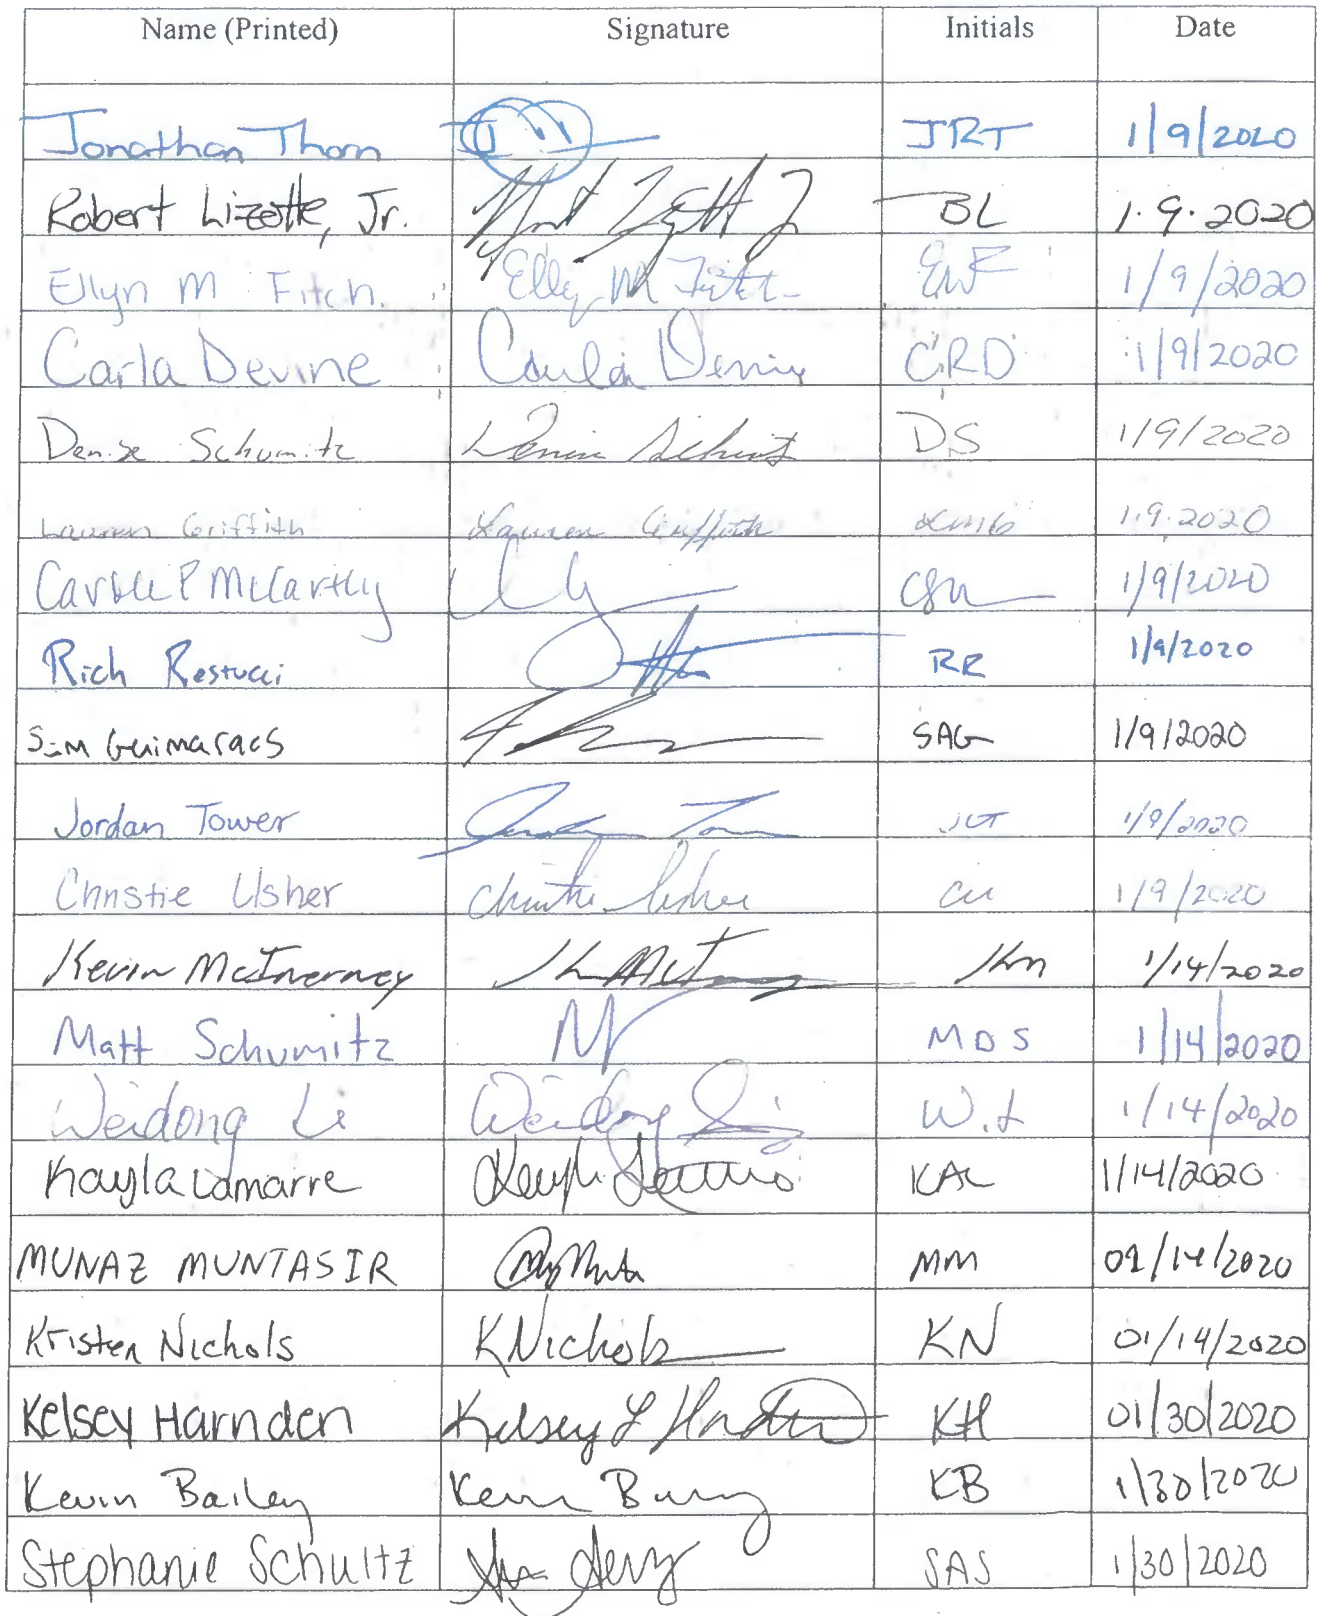 Name (Printed) Signature Initials Date
Jonathan Thorn JRT 1/9/2020
Robert Lizotte, Jr. BL 1.9.2020
Ellyn M Fitch Ellyn M Fitch EMF 1/9/2020
Carla Devine Carla Devine CRD 1/9/2020
Denise Schumitz Denise Schumitz DS 1/9/2020
Lauren Griffith Lauren Griffith 1.9.2020
McCarthy 1/9/2020
Rich Restucci RR 1/9/2020
Guimaraes SAG 1/9/2020
Jordan Tower Jordan Tower JCT 1/9/2020
Christie Usher Christie Usher CU 1/9/2020
Kevin McInerney KM 1/14/2020
Matt Schumitz MDS 1/14/2020
Weidong Li Weidong Li W.L 1/14/2020
Kayla Lamarre KAL 1/14/2020
MUNAZ MUNTASIR MM 01/14/2020
Kristen Nichols KNichols KN 01/14/2020
Kelsey Harnden Kelsey L Harnden KH 01/30/2020
Kevin Bailey Kevin KB 1/30/2020
Stephanie Schultz SAS 1/30/2020